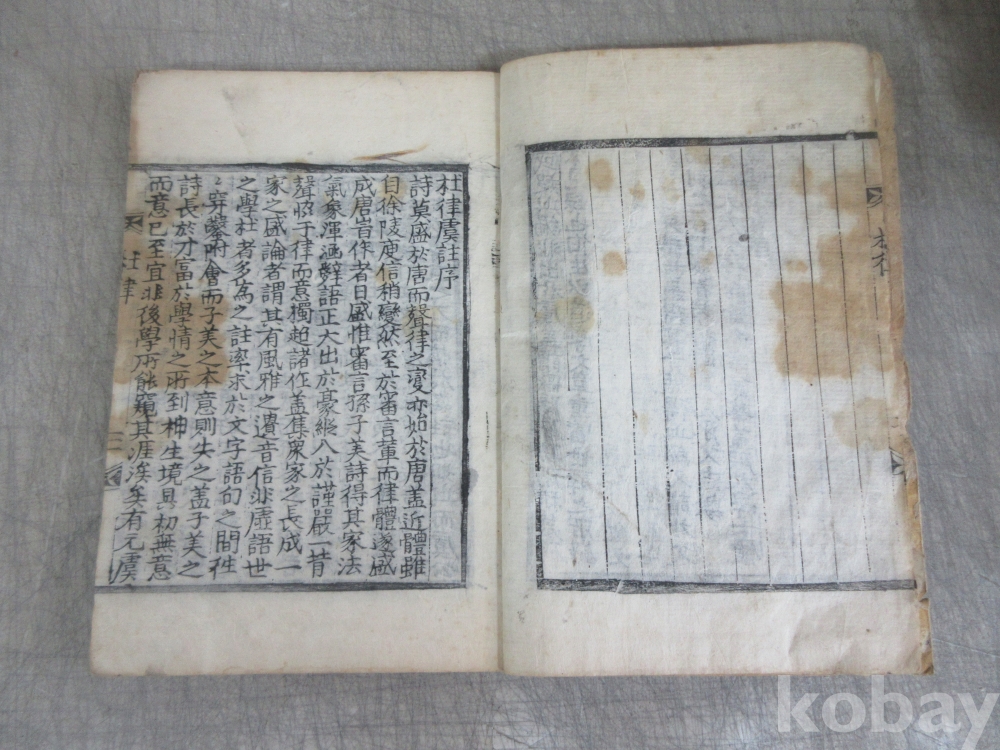 杜律虞註序
詩莫盛於唐而聲律之變亦始於唐盖近體雖
自徐陵庾信稍變然至於審言輩而律體遂盛
成唐旹作者日盛惟審言孫子美詩得其家法
氣象渾涵辭語正大出於豪縱入於謹嚴一昔
聲恊于律而意獨超諸作盖集衆家之長成一
家之盛論者謂其有風雅之遺音信非虛語世
之學杜者多為之註率求於文字語句之間徃
〻穿鑿附會而子美之本意則失之盖子美之
詩長於才富於學情之所到神生境具初無意
而意已至宜非後學所能窺其涯涘矣有元虞
杜律
kobay